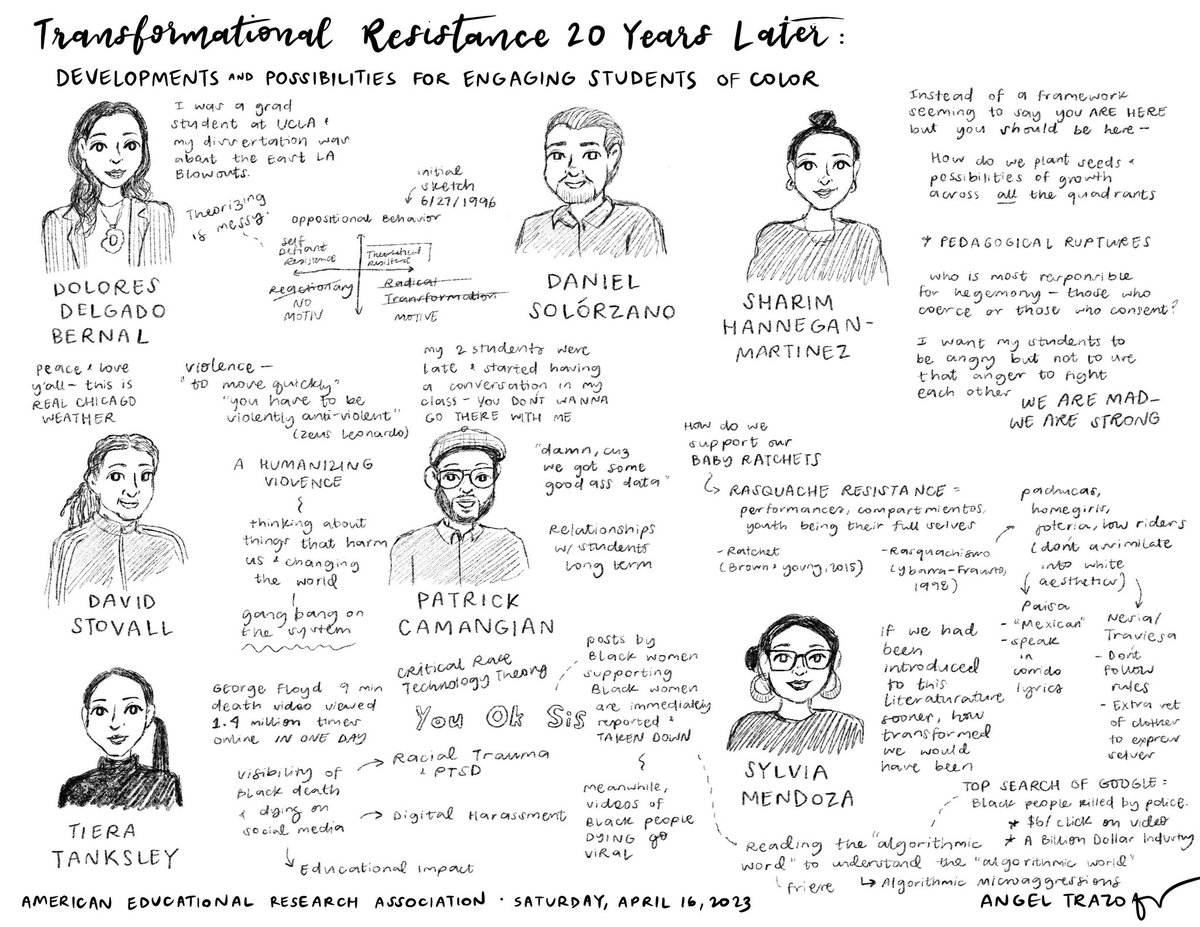 Transformational Resistance 20 Years Later:
DEVELOPMENTS AND POSSIBILITIES FOR ENGAGING STUDENTS OF COLOR
I was a grad
student at UCLA &
my dissertation was
about the East LA
Blowouts.
Theorizing
is messy.
initial
sketch
6/27/1996
Oppositional Behavior
Self
Defiant
Resistance
Theoretical
Resistance
Reactionary
NO
MOTIV
Radical
Transformation
MOTIVE
DOLORES
DELGADO
BERNAL
DANIEL
SOLÓRZANO
SHARIM
HANNEGAN-
MARTINEZ
Instead of a framework
seeming to say YOU ARE HERE
but you should be here—
How do we plant seeds &
possibilities of growth
across all the quadrants
* PEDAGOGICAL RUPTURES
who is most responsible
for hegemony - those who
coerce or those who consent?
I want my students to
be angry but not to use
that anger to fight
each other
WE ARE MAD—
WE ARE STRONG
peace & love
y'all - this is
REAL CHICAGO
WEATHER
violence —
"to move quickly"
"you have to be
violently anti-violent"
(Zeus Leonardo)
A HUMANIZING
VIOLENCE
thinking about
things that harm
us & changing
the world
gang bang on
the system
DAVID
STOVALL
my 2 students were
late & started having
a conversation in my
class - YOU DONT WANNA
GO THERE WITH ME
"damn, cuz
we got some
good ass data"
Relationships
w/ students
long term
PATRICK
CAMANGIAN
HOW do we
support our
BABY RATCHETS
RASQUACHE RESISTANCE =
performances, compartmientos,
youth being their full selves
- Ratchet
(Brown & Young, 2015)
- Rasquachismo
(Ybarra-Frausto,
1998)
pachucas,
homegirls,
joteria, low riders
(don't assimilate
into white
aesthetics)
Paisa
- "Mexican"
- speak
in
corrido
lyrics
Necia/
Traviesa
- Don't
follow
rules
- Extra set
of clothes
to express
selves
if we had
been
introduced
to this
literaturature
sooner, how
transformed
we would
have been
SYLVIA
MENDOZA
TIERA
TANKSLEY
George Floyd 9 min
death video viewed
1.4 million times
online IN ONE DAY
visibility of
Black death
& dying on
social media
Racial Trauma
& PTSD
Digital Harassment
Educational impact
Critical Race
Technology Theory
You Ok Sis
posts by
Black women
supporting
Black women
are immediately
reported &
TAKEN DOWN
meanwhile,
videos of
Black people
DYING go
VIRAL
TOP SEARCH OF GOOGLE =
Black people killed by police.
* $6/ click on video
* A Billion Dollar Industry
Reading the "algorithmic
word" to understand the "algorithmic world"
friere
Algorithmic microaggressions
AMERICAN EDUCATIONAL RESEARCH ASSOCIATION · SATURDAY, APRIL 16, 2023
ANGEL TRAZO